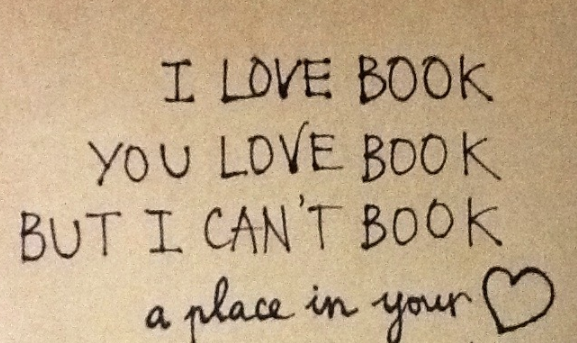 I LOVE BOOK
YOU LOVE BOOK
BUT I CAN'T BOOK
a place in your ♡